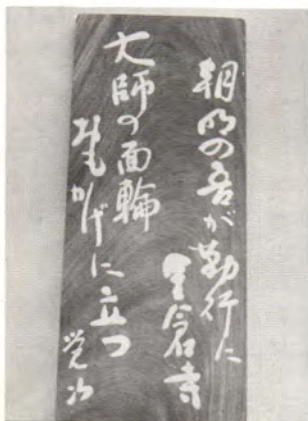 朝明の吾が勤行に
金倉寺
大師の面輪
おもかげに立つ